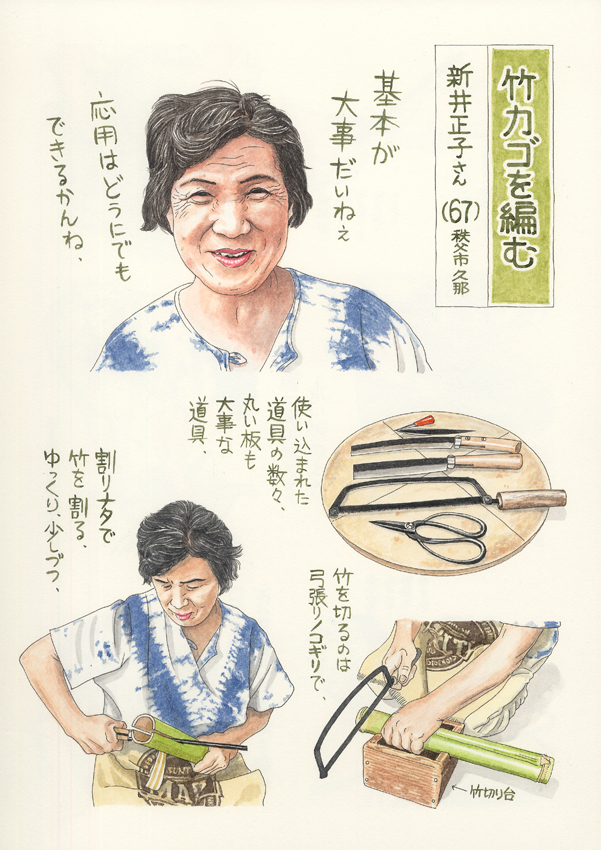 竹カゴを編む
新井正子さん(67)秩父市久那
基本が
大事だいねぇ
応用はどうにでも
できるかんね、
使い込まれた
道具の数々、
丸い板も
大事な
道具、
割りナタで
竹を割る、
ゆっくり、少しづつ、
竹を切るのは
弓張りノコギリで、
←竹切り台